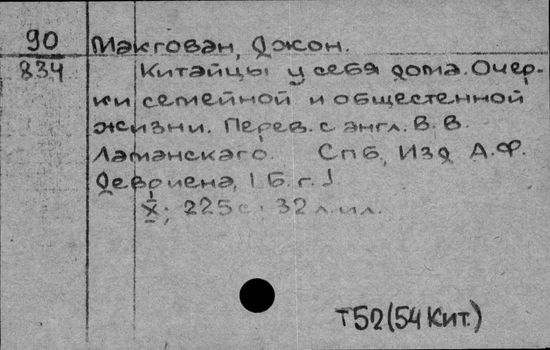 90
834
Макгован, Джон.
Китайцы у себя дома. Очер-
ки семейной и общестенной
жизни. Перев. с англ. В. В.
Ламанскаго. Спб, Изд А.Ф.
Девриена, [Б.г.].
X; 225с. 32 л.ил.
Т52(54Кит.)